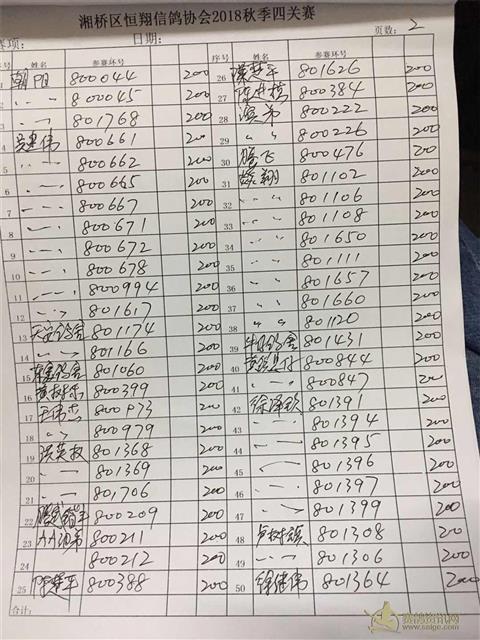 湘桥区恒翔信鸽协会2018秋季四关赛
赛项： 日期： 页数：2
序号 姓名 参赛环号 序号 姓名 参赛环号
1 朝阳 800044 200 26 801626 200
2 800045 200 27 800384 200
3 801768 200 28 800222 200
4 800661 200 29 〃 800226 200
5 800662 200 30 腾飞 800476 200
6 800665 200 31 翔 801102 200
7 800667 200 32 801106 200
8 800671 200 33 801108 200
9 800672 200 34 801650 200
10 800678 200 35 801111 200
11 800994 200 36 801657 200
12 801617 200 37 801660 200
13 天安鸽舍 801174 200 38 801120 200
14 801166 200 39 鸽舍 801431 200
15 801060 200 40 800844 200
16 800399 200 41 800847 200
17 800973 200 42 徐泽欽 801391 200
18 800979 200 43 801394 200
19 801368 200 44 801395 200
20 801369 200 45 801396 200
21 801706 200 46 801397 200
22 800209 200 47 801399 200
23 AA 800211 200 48 801308 200
24 800212 200 49 801306 200
25 800388 200 50 徐 伟 801364 200
合计：
赛鸽资讯网
www.saige.com